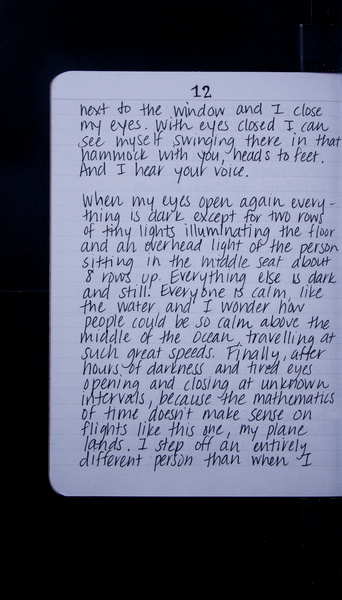 12
next to the window and I close
my eyes. With eyes closed I can
see myself swinging there in that
hammock with you, heads to feet.
And I hear your voice.
When my eyes open again every-
thing is dark except for two rows
of tiny lights illuminating the floor
and an overhead light of the person
sitting in the middle seat about
8 rows up. Everything else is dark
and still. Everyone is calm, like
the water, and I wonder how
people could be so calm above the
middle of the ocean, travelling at
such great speeds. Finally, after
hours of darkness and tired eyes
opening and closing at unknown
intervals, because the mathematics
of time doesn't make sense on
flights like this one, my plane
lands. I step off an entirely
different person than when I